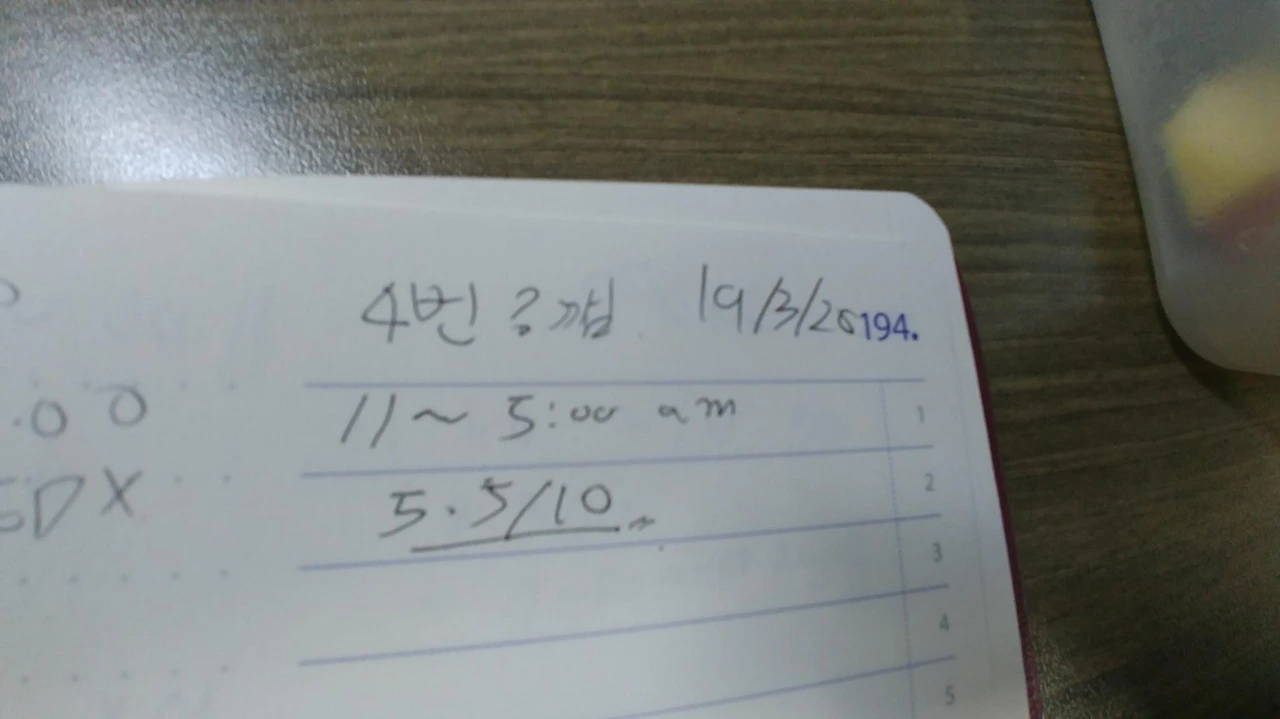 4번 ? 깸 19/3/26 194.
11 ~ 5:00 am 1
.00
5.5/10 2
DX
3
4
5